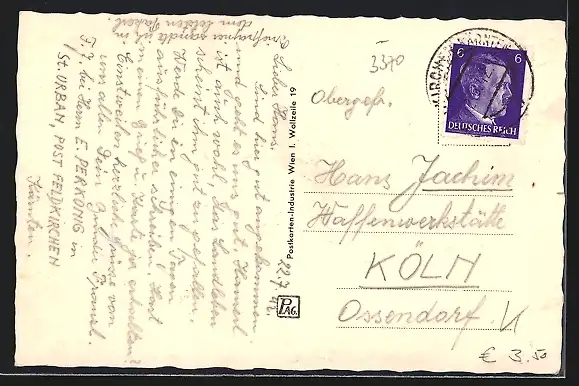 Lieber Hans.
Sind hier gut angekommen
und geht es uns gut. Hansert
ist auch wohl. Das Landleben
scheint ihm gut zu gefallen.
Werde Dir in einigen
ausführlicher schreiben. Hast
Du einen Brief u. Karte ja erhalten?
Einstweilen herzliche Grüsse von
uns allen Dein Bruder
F. J. bei Herrn E. PERKONIG in
St. URBAN, POST FELDKIRCHEN
Kärnten.
sandte ich in
dem letzten
22.7.42.
Postkarten-Industrie Wien I. Wollzeile 19
PAG.
3370
6 6
DEUTSCHES REICH
Obergefr.
Hans Jachim
Waffenwerkstätte
KÖLN
Ossendorf
€ 3.50